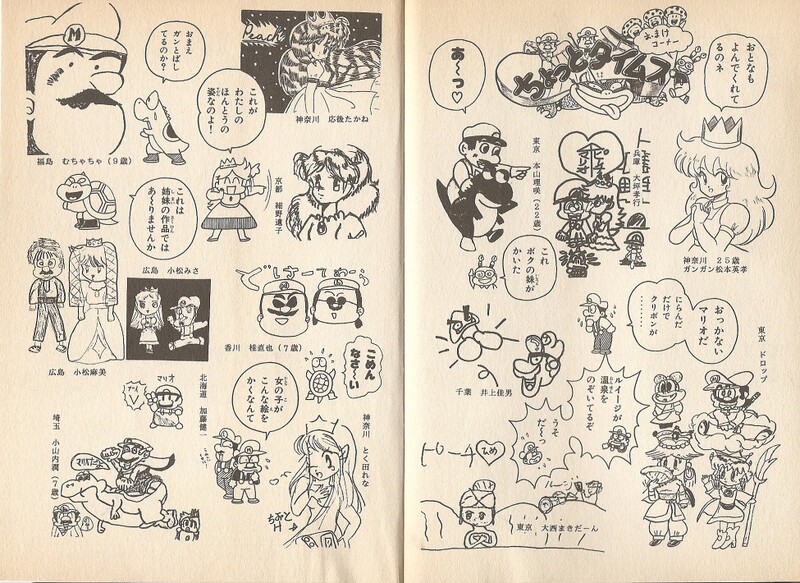 おまけ
コーナー
ちょっとタイムス
おとなも
よんでくれて
るのネ
あ〜っ♡
東京 本山理咲(22歳)
兵庫 大坪孝行
神奈川 25歳
ガンガン松本英孝
これ
ボクの妹が
かいた
おっかない
マリオだ
にらんだ
だけで
クリボンが
………
東京 ドロップ
千葉 井上佳男
ルイージが
温泉を
のぞいてるぞ
うそ
だ〜っ
ひめ
ルージ
東京 大西まきだーん
M
おまえ
ガンとばし
てるのか?
福島 むちゃちゃ(9歳)
Peach
神奈川 応後たかね
これが
わたしの
ほんとうの
姿なのよ!
すがた
京都 紺野遺子
これは
姉妹の作品では
しまい さくひん
あ〜りませんか
広島 小松みさ
広島 小松麻美
でばーてめら
香川 桂直也(7歳)
ごめん
なさ〜い
女の子が
こんな絵を
かくなんて
北海道 加藤健一
マリオ
神奈川 とく田れな
埼玉 小山内潤(7歳)